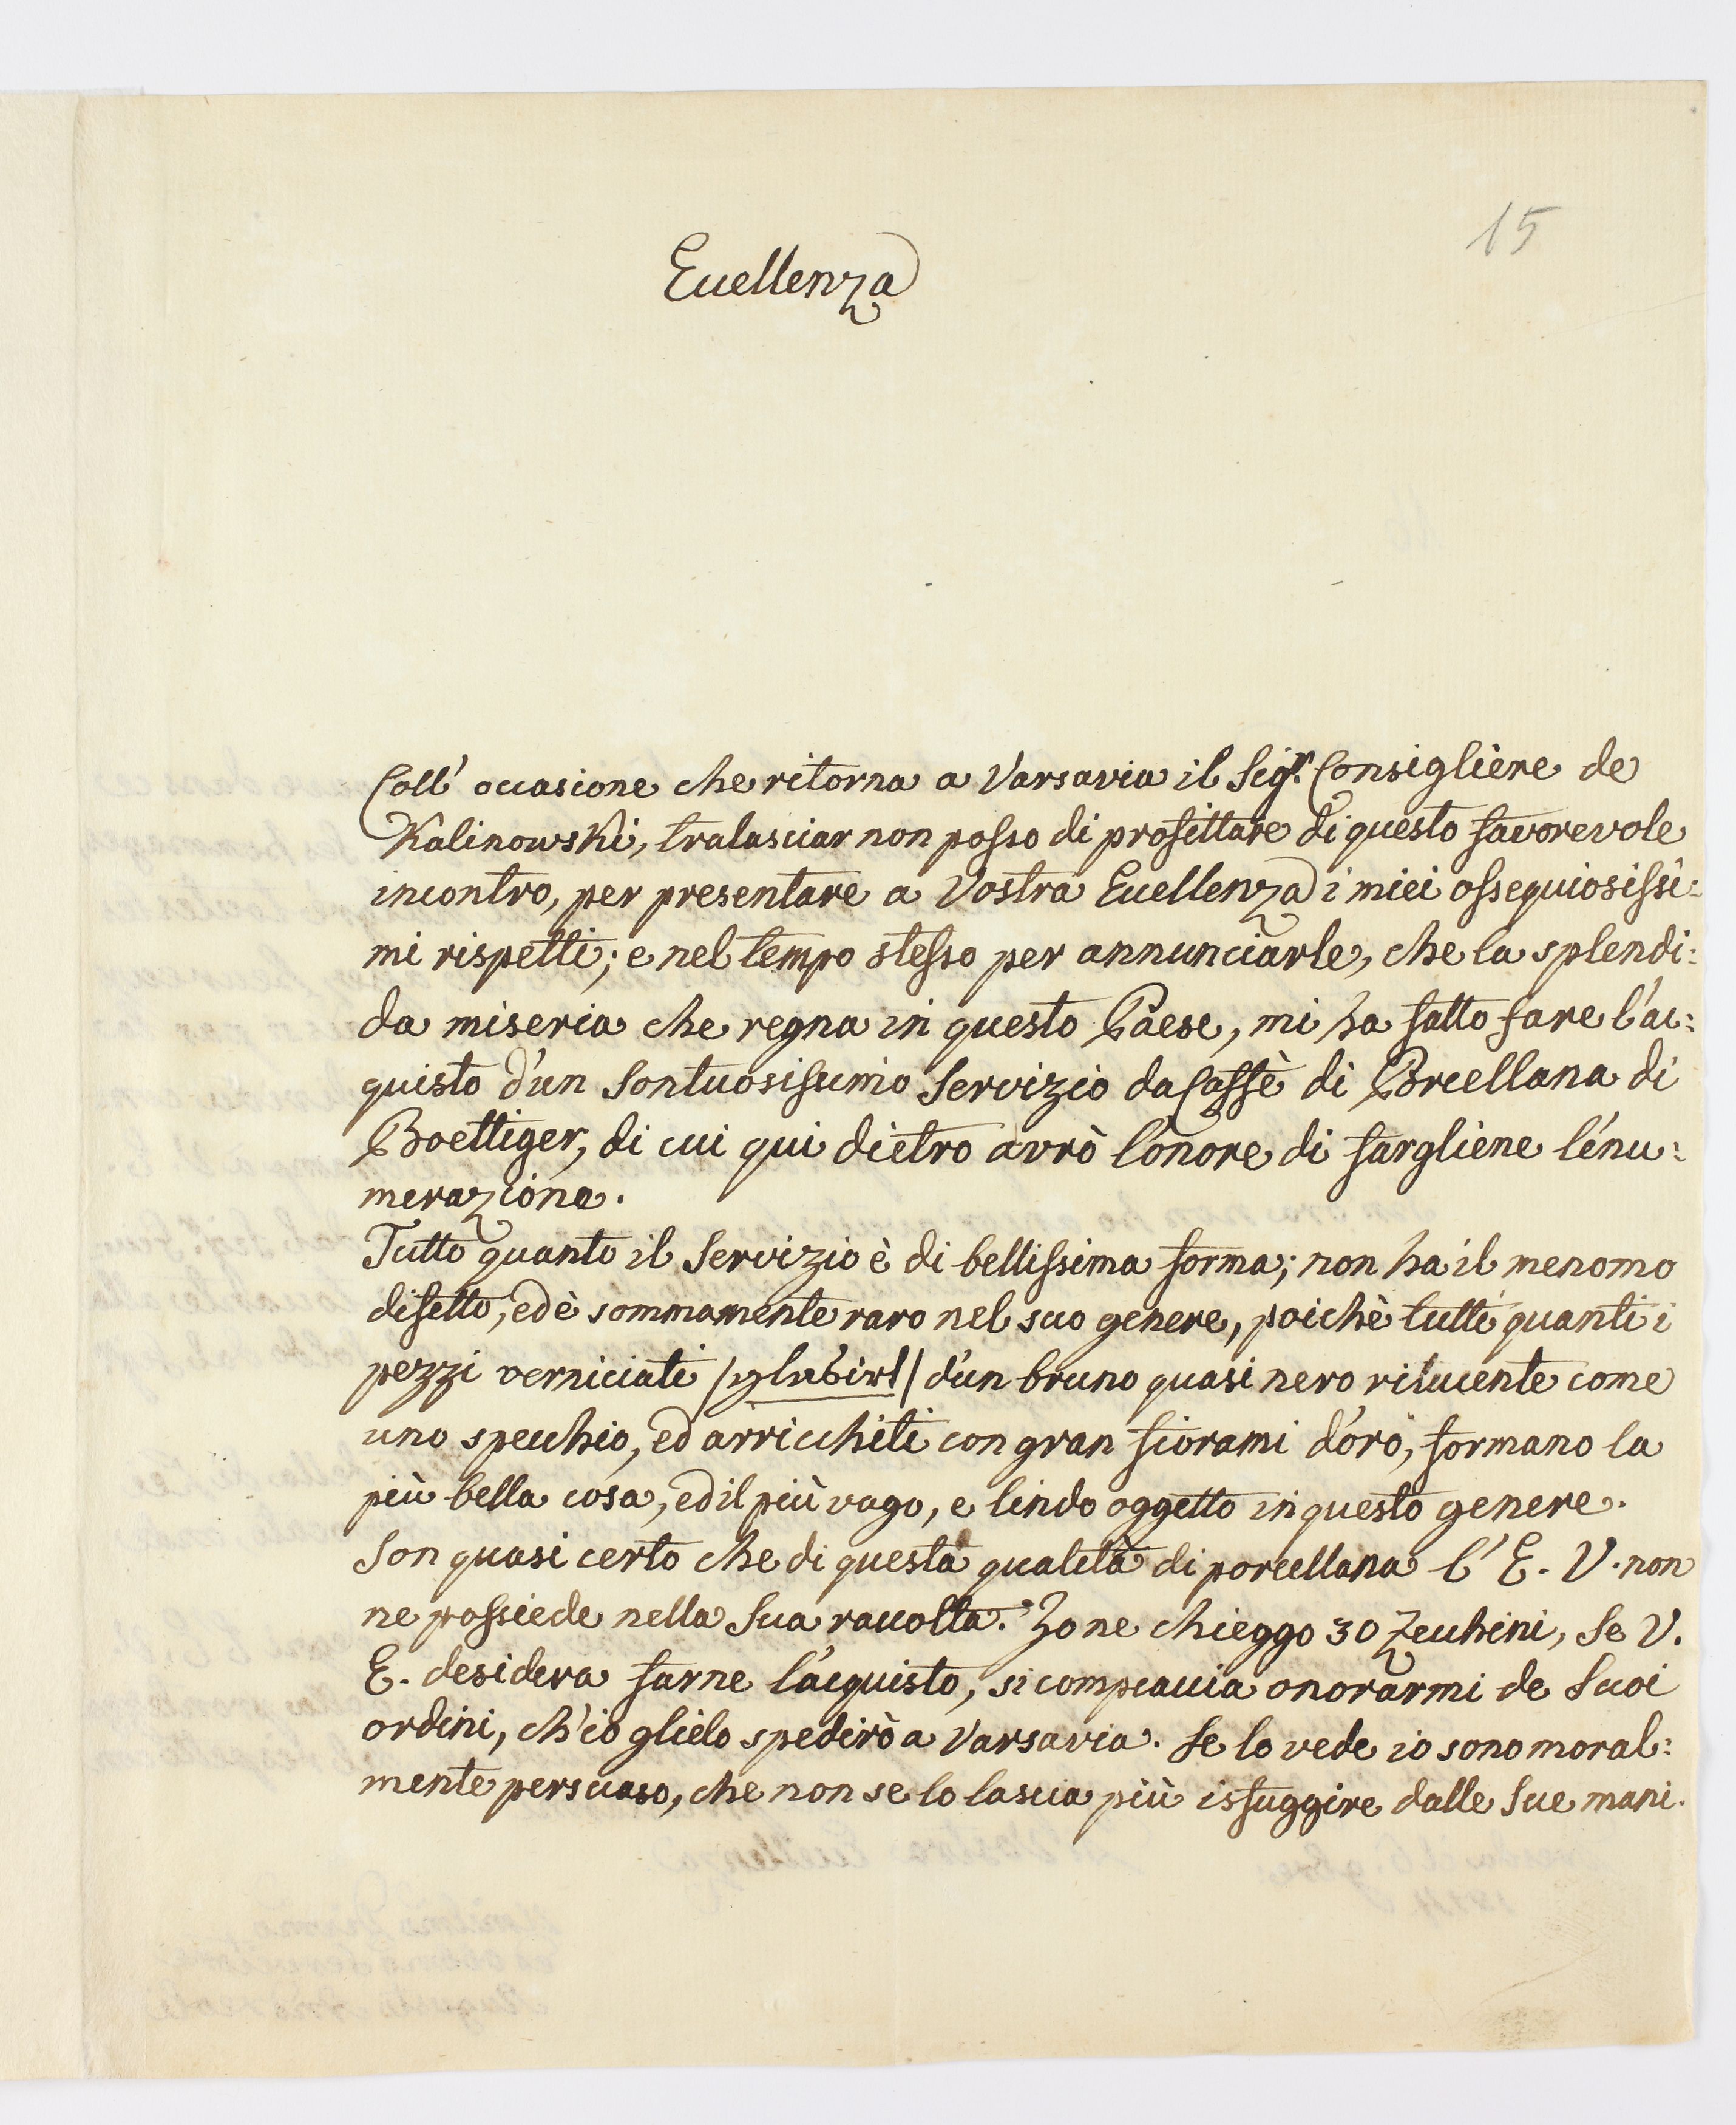 15
Eccellenza
Coll' occasione che ritorna a Varsavia il Sigr. Consigliere de
Kalinowski, tralasciar non posso di profittare di questo favorevole
incontro, per presentare a Vostra Eccellenza i miei ossequiosissi:
mi rispetti; e nel tempo stesso per annunciarle, che la splendi:
da miseria che regna in questo Paese, mi ha fatto fare l'ac:
quisto d'un sontuosissimo Servizio da Caffè di Porcellana di
Boettiger, di cui qui dietro avrò l'onore di fargliene l'enu:
merazione.
Tutto quanto il Servizio è di bellissima forma; non ha il menomo
difetto, ed è sommamente raro nel suo genere, poichè tutti quanti i
pezzi verniciati /glasirt/ d'un bruno quasi nero rilucente come
uno specchio, ed arricchiti con gran fiorami d'oro, formano la
più bella cosa, ed il più vago, e lindo oggetto in questo genere.
Son quasi certo che di questa qualità di porcellana l' E. V. non
ne possiede nella Sua raccolta. Io ne chieggo 30 Zecchini, Se V.
E. desidera farne l'acquisto, si compiaccia onorarmi de Suoi
ordini, ch'io glielo spedirò a Varsavia. Se lo vede io sono moral:
mente persuaso, che non se lo lascia più isfuggire dalle Sue mani.